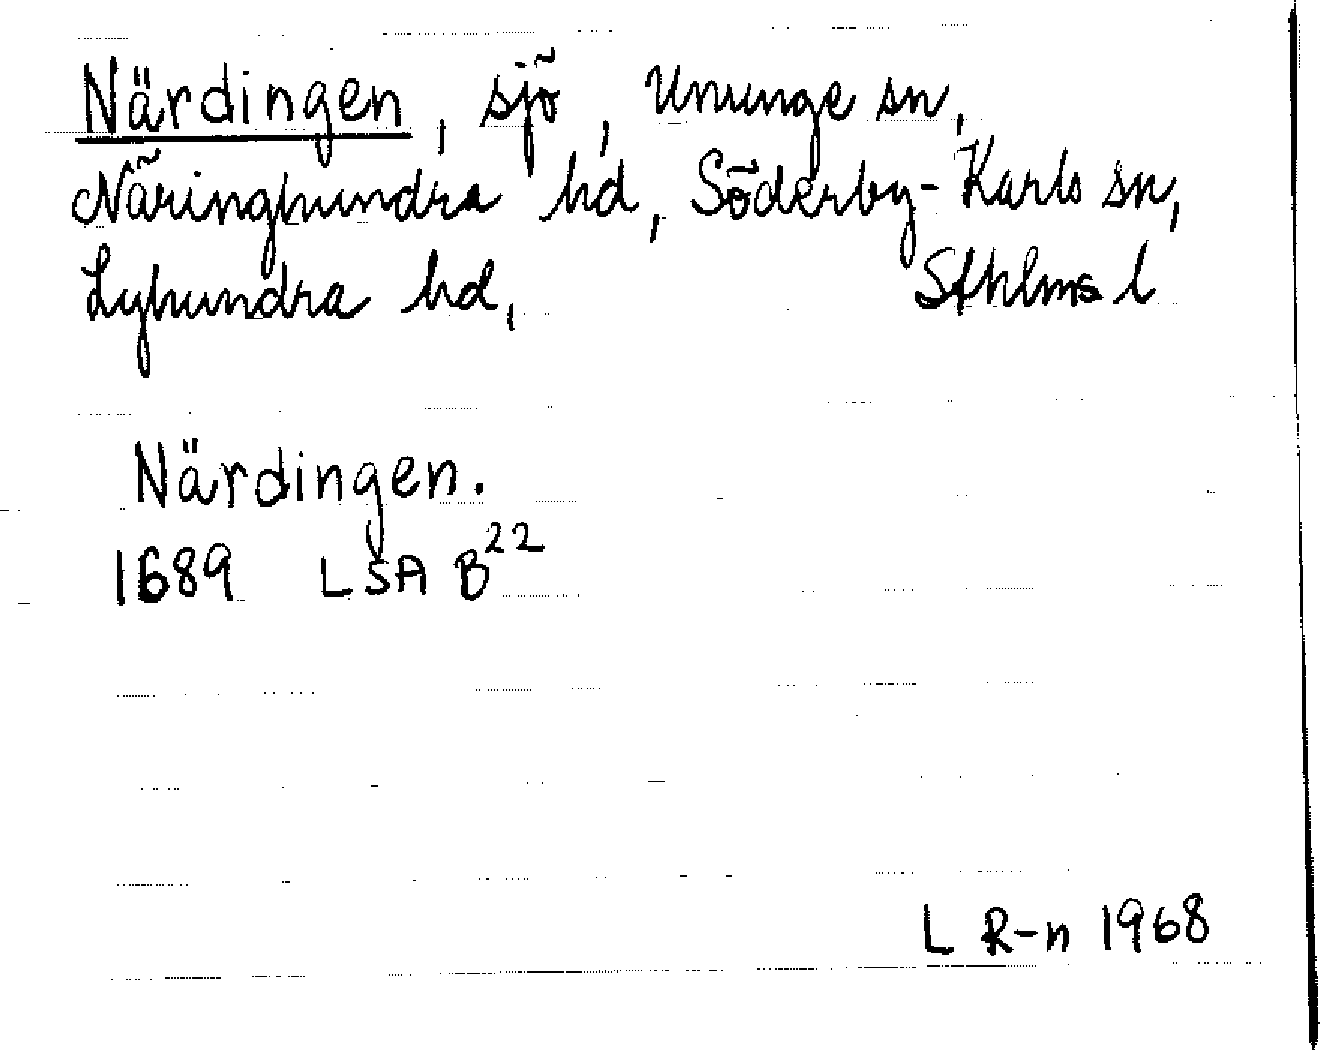 Närdingen, sjö, Ununge sn,
Näringhundra hd, Söderby-Karls sn,
Lyhundra hd, Sthlms l
Närdingen.
1689 LSA B²²
L R-n 1968